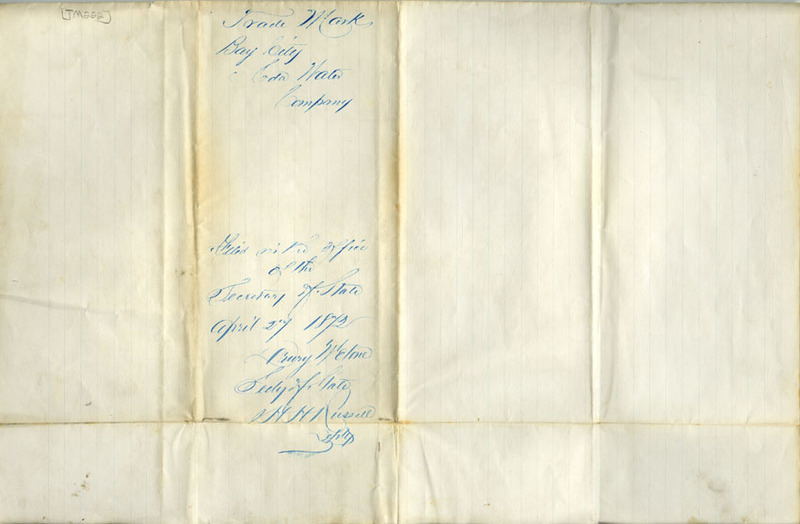 [TM222]
Trade Mark
Bay City
Soda Water
Company
Filed in the office
of the
Secretary of State
April 27 1872
Drury Melone
Secty of State
H H Russell
Dpty